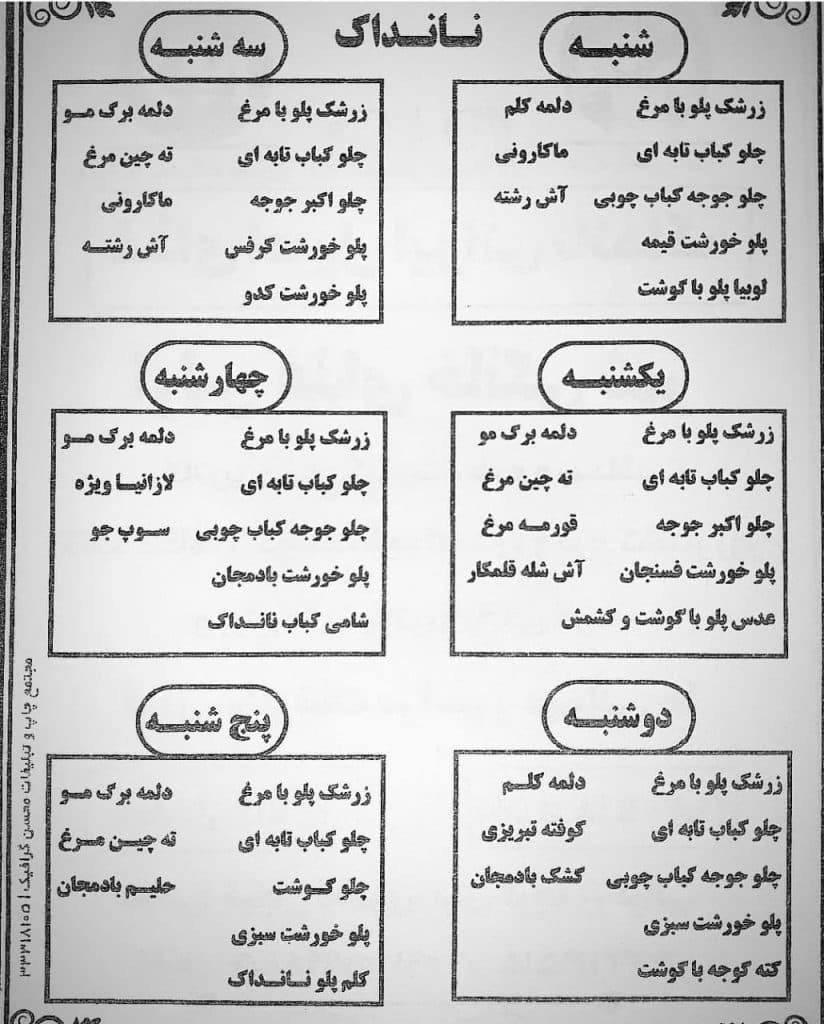 نانداک
شنبه
زرشک پلو با مرغ دلمه کلم
چلو کباب تابه ای ماکارونی
چلو جوجه کباب چوبی آش رشته
پلو خورشت قیمه
لوبیا پلو با گوشت
یکشنبه
زرشک پلو با مرغ دلمه برگ مو
چلو کباب تابه ای ته چین مرغ
چلو اکبر جوجه قورمه مرغ
پلو خورشت فسنجان آش شله قلمکار
عدس پلو با گوشت و کشمش
دوشنبه
زرشک پلو با مرغ دلمه کلم
چلو کباب تابه ای کوفته تبریزی
چلو جوجه کباب چوبی کشک بادمجان
پلو خورشت سبزی
کته گوجه با گوشت
سه شنبه
زرشک پلو با مرغ دلمه برگ مو
چلو کباب تابه ای ته چین مرغ
چلو اکبر جوجه ماکارونی
پلو خورشت کرفس آش رشته
پلو خورشت کدو
چهارشنبه
زرشک پلو با مرغ دلمه برگ مو
چلو کباب تابه ای لازانیا ویژه
چلو جوجه کباب چوبی سوپ جو
پلو خورشت بادمجان
شامی کباب نانداک
پنج شنبه
زرشک پلو با مرغ دلمه برگ مو
چلو کباب تابه ای ته چین مرغ
چلو گوشت حلیم بادمجان
پلو خورشت سبزی
کلم پلو نانداک
مجتمع چاپ و تبلیغات محسن گرافیک | ۳۳۳۱۸۱۰۵